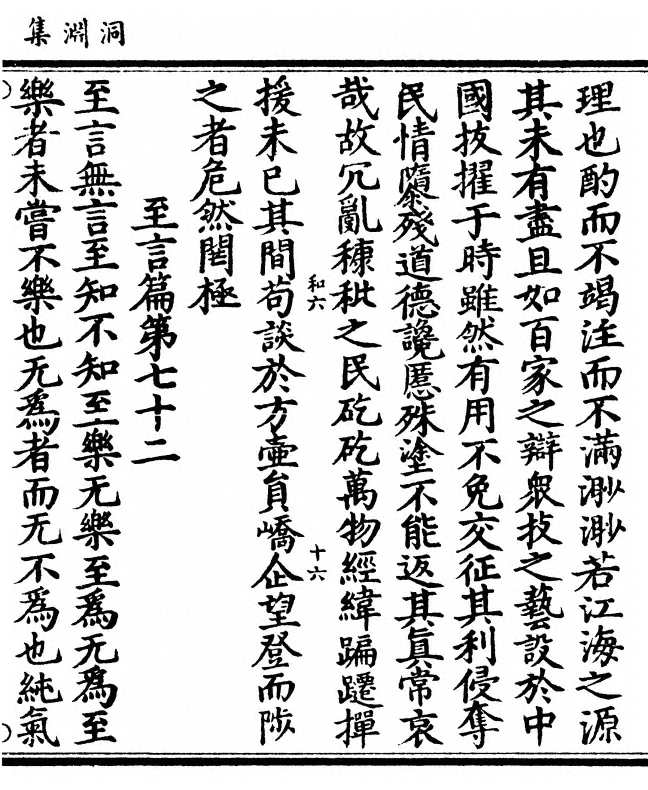 洞淵集
理也酌而不竭注而不滿渺渺若江海之源
其未有盡且如百家之辯衆技之藝設於中
國拔擢于時雖然有用不免交征其利侵奪
民情隳殘道德讒慝殊塗不能返其眞常哀
哉故冗亂穅秕之民矻矻萬物經緯蹁躚撣
援未已其間苟談於方壷員嶠企望登而陟
之者危然閏極
和六
十六
至言篇第七十二
至言無言至知不知至樂无樂至爲无爲至
樂者未嘗不樂也无爲者而无不爲也純氣